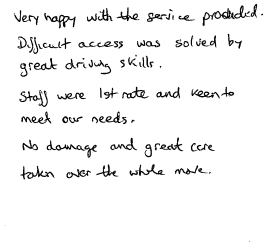 Very happy with the service provided.
Difficult access was solved by
great driving skills.
Staff were 1st rate and keen to
meet our needs.
No damage and great care
taken over the whole move.